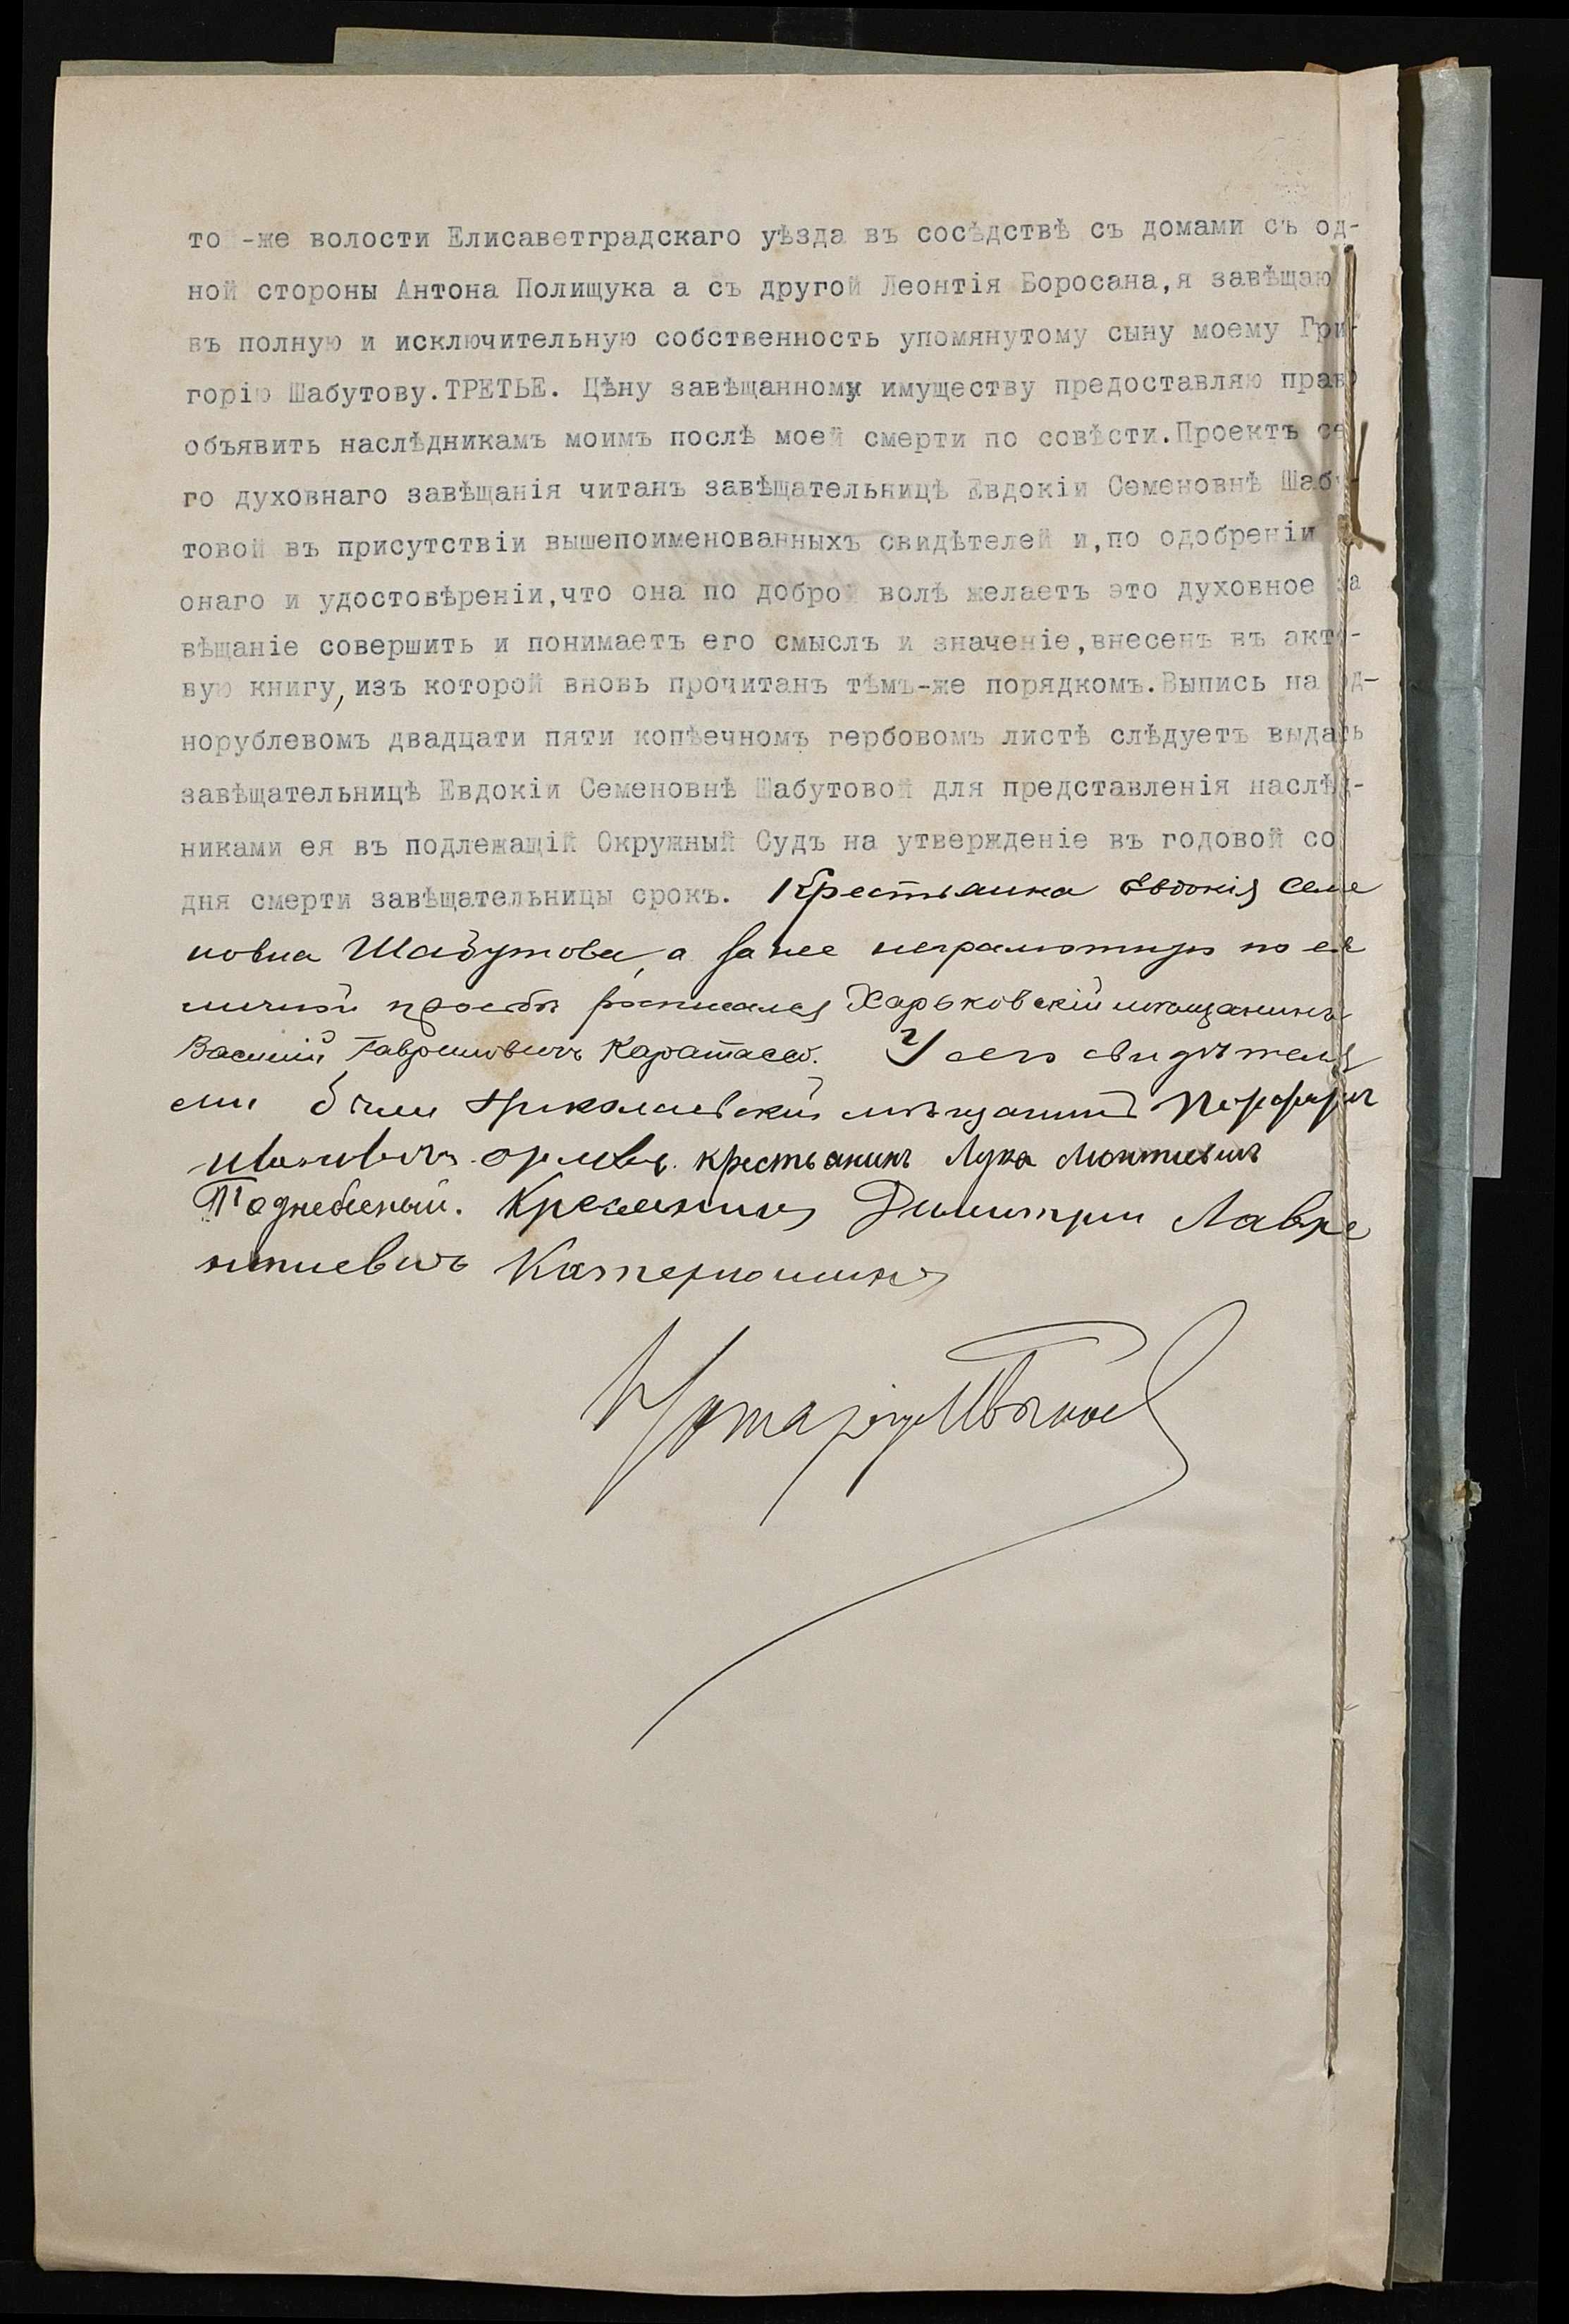 то -же волости Елисаветградскаго уѣзда въ сосѣдствѣ съ домами съ од-
ной стороны Антона Полищука а съ другой Леонтія Боросана,я завѣщаю
въ полную и исключительную собственность упомянутому сыну моему Гри-
горію Шабутову.ТРЕТЬЕ. Цѣну завѣщанному имуществу предоставляю право
объявить наслѣдникамъ моимъ послѣ моей смерти по совѣсти.Проектъ се
го духовнаго завѣщанія читанъ завѣщательницѣ Евдокіи Семеновнѣ Шабу
товой въ присутствіи вышепоименованныхъ свидѣтелей и,по одобреніи
онаго и удостовѣреніи,что она по доброй волѣ желаетъ это духовное за
вѣщаніе совершить и понимаетъ его смыслъ и значеніе,внесенъ въ акто-
вую книгу,изъ которой вновь прочитанъ тѣмъ-же порядкомъ.Выпись на од-
норублевомъ двадцати пяти копѣечномъ гербовомъ листѣ слѣдуетъ выдать
завѣщательницѣ Евдокіи Семеновнѣ Шабутовой для представленія наслѣд-
никами ея въ подлежащій Окружный Судъ на утвержденіе въ годовой со
дня смерти завѣщательницы срокъ. Крестьянка Евдокія Семе
новна Шабутова, а за нее неграмотную по ея
личной просьбѣ росписался Харьковскій мѣщанинъ
Василій Гавриловичъ У сего свидѣтеля
ми были Николаевский мѣщанинъ
Ивановичъ Орловъ. крестьянинъ Лука
Поднебесный. Димитрий Лавре
нтиевичъ
Нотаріусъ